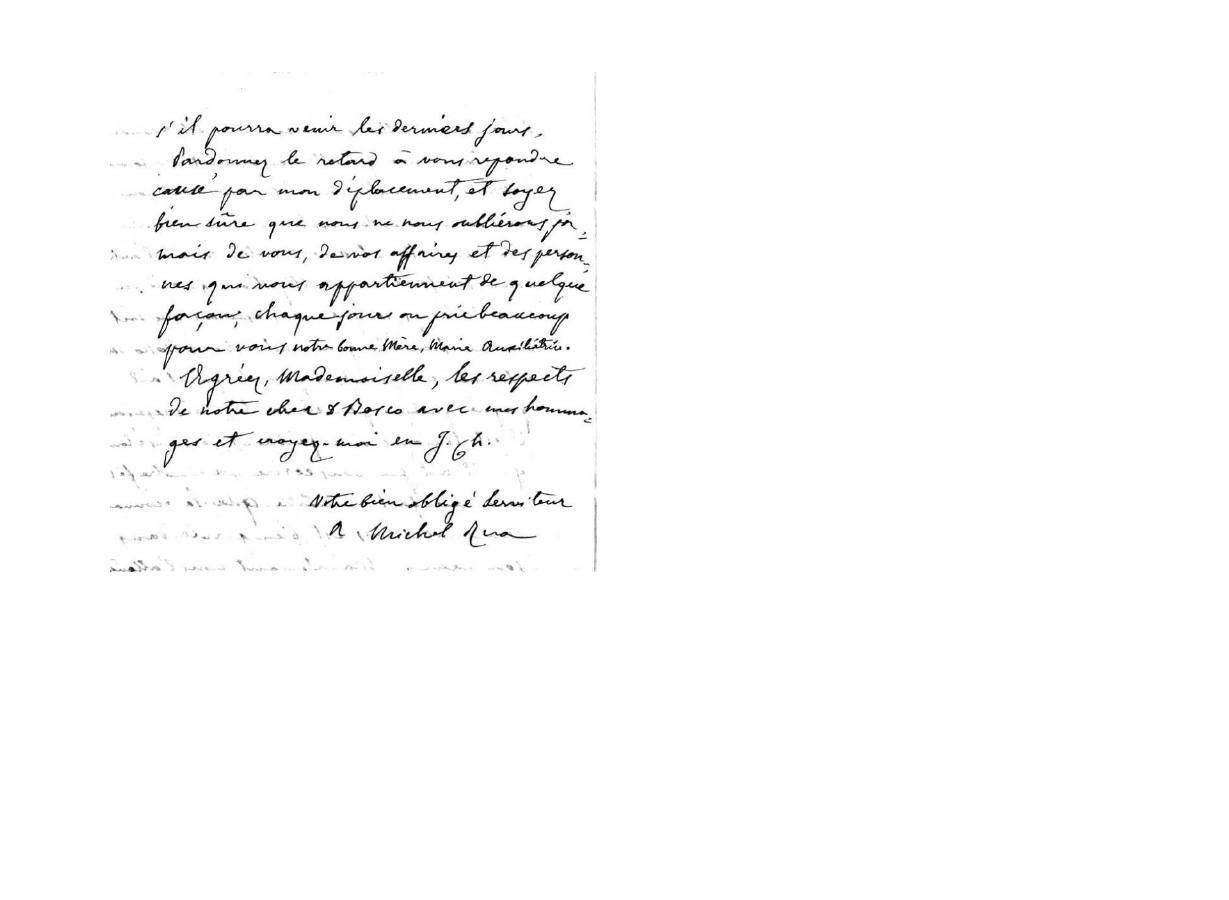 s'il pourra venir les derniers jours.
Pardonnez le retard à vous repondre
causé par mon déplacement, et soyez
bien sûre que nous ne nous oublierons ja=
mais de vous, de vos affaires et des person=
nes qui vous appartiennent de quelque
façon; chaque jour on prie beaucoup
pour vous notre bonne Mère, Marie Auxiliatrice.
Agréez, Mademoiselle, les respects
de notre cher D Bosco avec mes homma=
ges et croyez-moi en J. Ch.
Votre bien obligé Serviteur
Michel Rua